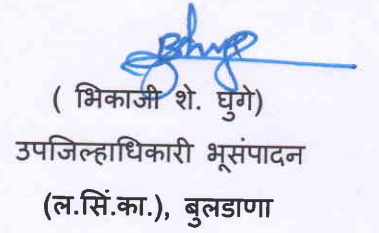 ( भिकाजी शे. घुगे)
उपजिल्हाधिकारी भूसंपादन
(ल.सिं.का.), बुलडाणा